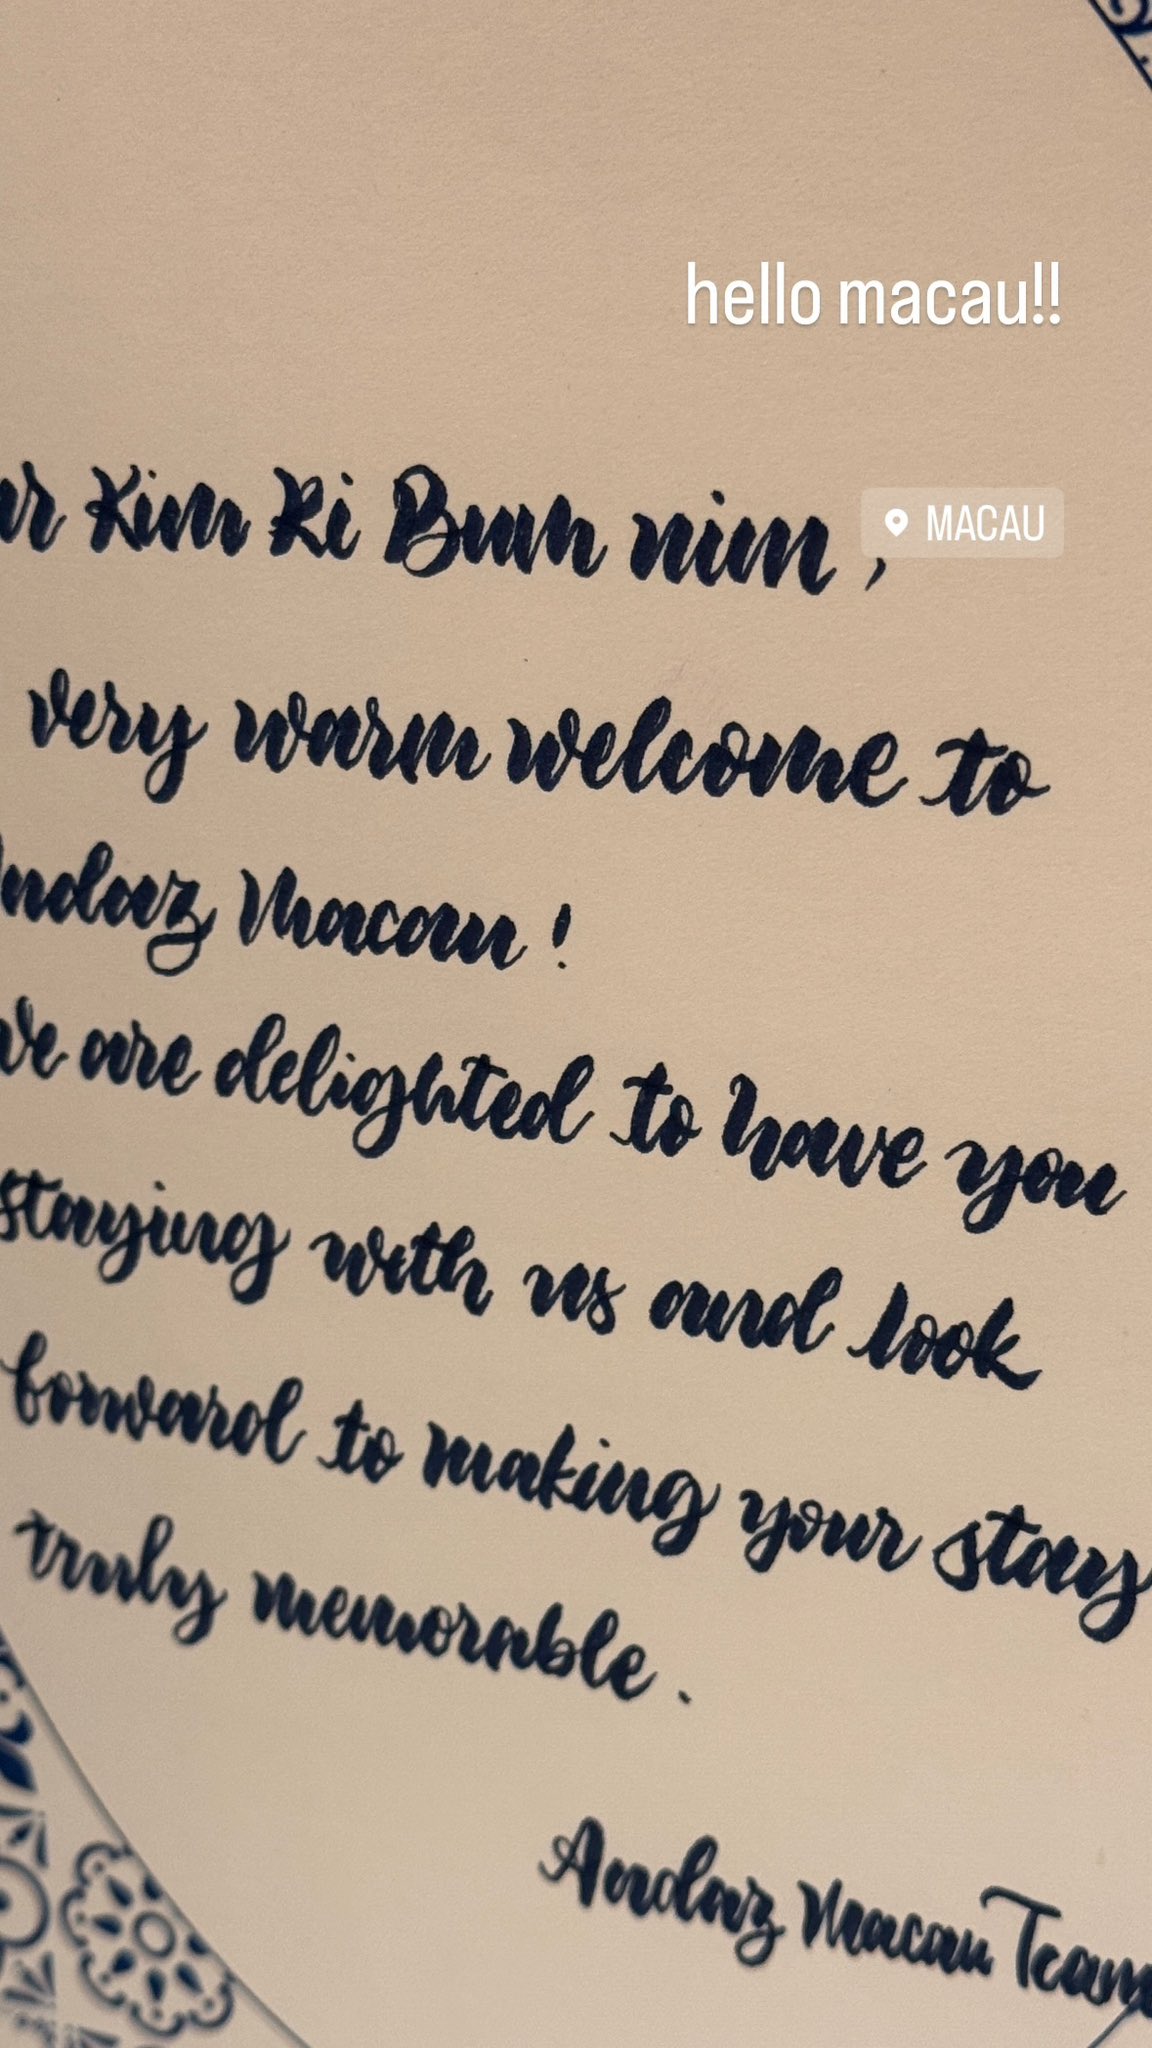 hello macau!!
MACAU
ar Kim Ki Bum nim,
very warm welcome to
Andaz Macau!
We are delighted to have you
staying with us and look
forward to making your stay
truly memorable.
Andaz Macau Team